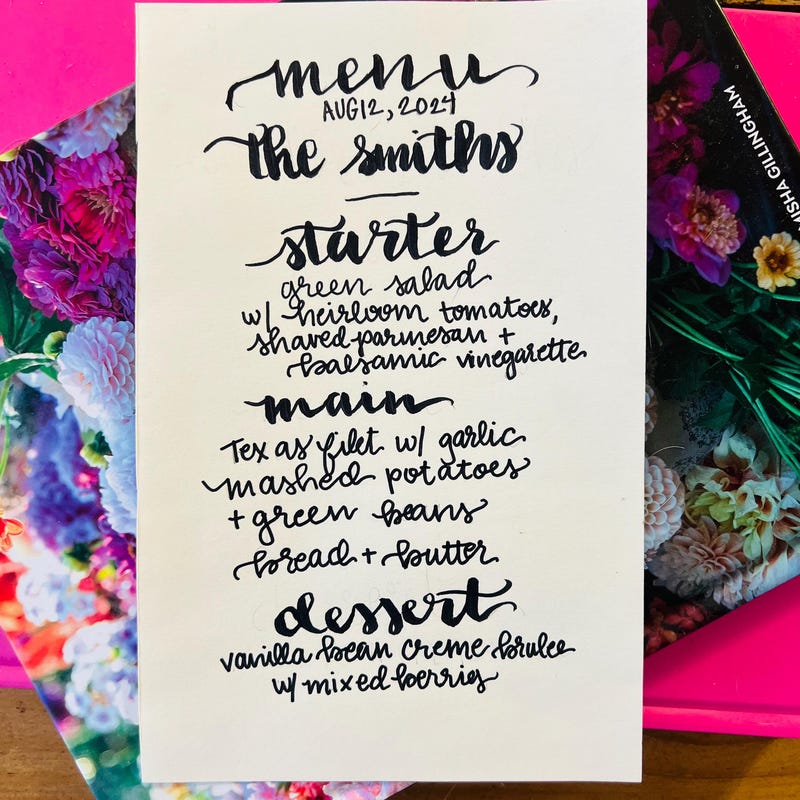 menu
AUG 12, 2024
the smiths
starter
green salad
w/ heirloom tomatoes,
shaved parmesan +
balsamic vinegarette
main
Texas filet w/ garlic
mashed potatoes
+ green beans
bread + butter
dessert
vanilla bean creme brulee
w/ mixed berries
MISHA GILLINGHAM